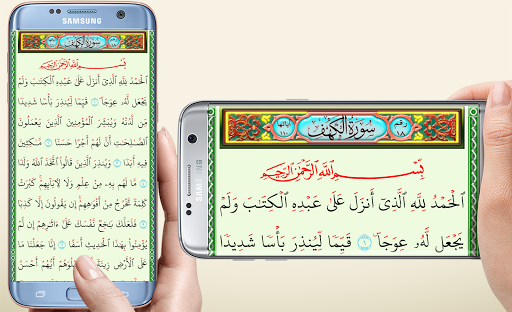 SAMSUNG
سُورَةُ الكَهْفِ
بِسْمِ اللَّهِ الرَّحْمَٰنِ الرَّحِيمِ
اَلْحَمْدُ لِلَّهِ الَّذِىٓ أَنزَلَ عَلَىٰ عَبْدِهِ الْكِتَٰبَ وَلَمْ
يَجْعَل لَّهُۥ عِوَجَا ۜ ١ قَيِّمًا لِّيُنذِرَ بَأْسًا شَدِيدًا
مِّن لَّدُنْهُ وَيُبَشِّرَ الْمُؤْمِنِينَ الَّذِينَ يَعْمَلُونَ
الصَّٰلِحَٰتِ أَنَّ لَهُمْ أَجْرًا حَسَنًا ٢ مَّٰكِثِينَ
فِيهِ أَبَدًا ٣ وَيُنذِرَ الَّذِينَ قَالُوا۟ اتَّخَذَ اللَّهُ وَلَدًا
٤ مَّا لَهُم بِهِۦ مِنْ عِلْمٍ وَلَا لِءَابَآئِهِمْ كَبُرَتْ
كَلِمَةً تَخْرُجُ مِنْ أَفْوَٰهِهِمْ إِن يَقُولُونَ إِلَّا كَذِبًا
٥ فَلَعَلَّكَ بَٰخِعٌ نَّفْسَكَ عَلَىٰٓ ءَاثَٰرِهِمْ إِن لَّمْ
يُؤْمِنُوا۟ بِهَٰذَا الْحَدِيثِ أَسَفًا ٦ إِنَّا جَعَلْنَا مَا
عَلَى الْأَرْضِ أَيُّهُمْ أَحْسَنُ
SAMSUNG
رقم ١٨ سُورَةُ الكَهْفِ آياتها ١١٠
بِسْمِ اللَّهِ الرَّحْمَٰنِ الرَّحِيمِ
اَلْحَمْدُ لِلَّهِ الَّذِىٓ أَنزَلَ عَلَىٰ عَبْدِهِ الْكِتَٰبَ وَلَمْ
يَجْعَل لَّهُۥ عِوَجَا ۜ ١ قَيِّمًا لِّيُنذِرَ بَأْسًا شَدِيدًا